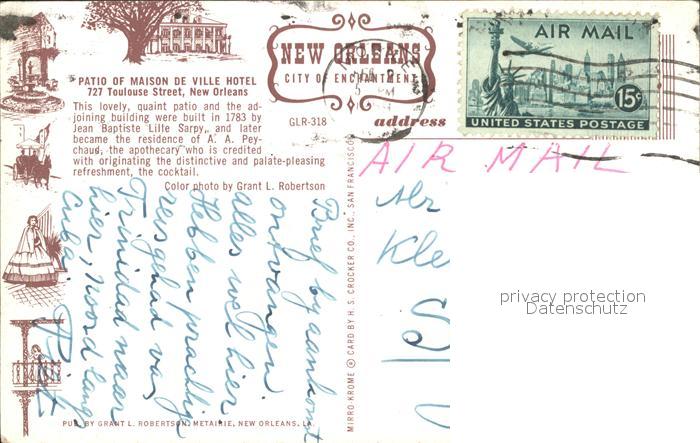 PATIO OF MAISON DE VILLE HOTEL
727 Toulouse Street, New Orleans
This lovely, quaint patio and the ad-
joining building were built in 1783 by
Jean Baptiste Lille Sarpy, and later
became the residence of A. A. Pey-
chaud, the apothecary who is credited
with originating the distinctive and palate-pleasing
refreshment, the cocktail.
Color photo by Grant L. Robertson
NEW ORLEANS
CITY OF ENCHANTMENT
GLR-318
address
AIR MAIL
15¢
UNITED STATES POSTAGE
AIR MAIL
Mr
Kle
Brief by aankomst
ontvangen
alles wel hier
Hebben prachtige
reis gehad van
Trinidad naar
hier, Noord langs
Cuba.
Piet
MIRRO-KROME ® CARD BY H. S. CROCKER CO., INC., SAN FRANCISCO
PUB. BY GRANT L. ROBERTSON, METAIRIE, NEW ORLEANS, LA.
privacy protection
Datenschutz